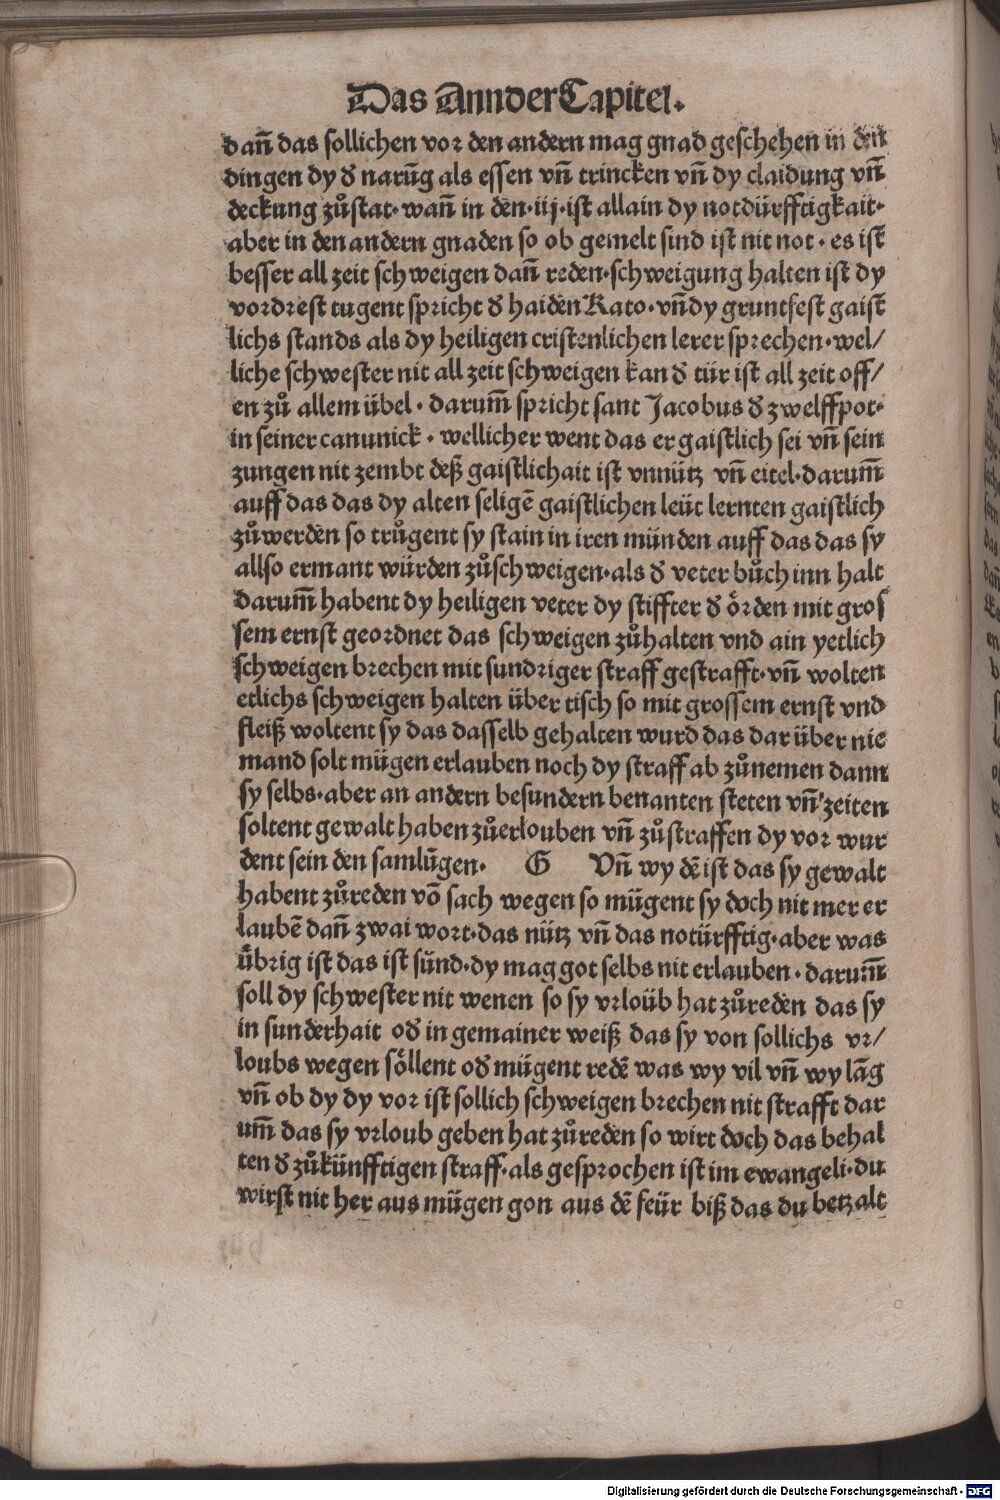 Das Annder Capitel.
dañ das sollichen vor den andern mag gnad geschehen in den
dingen dy đ narūg als essen vñ trincken vñ dy claidung vñ
deckung zůstat· wañ in den·iij·ist allain dy notdürfftigkait·
aber in den andern gnaden so ob gemelt sind ist nit not · es ist
besser all zeit schweigen dañ reden·schweigung halten ist dy
vordrest tugent spricht đ haiden Kato·vñ dy gruntfest gaist
lichs stands als dy heiligen cristenlichen lerer sprechen·wel/
liche schwester nit all zeit schweigen kan đ tür ist all zeit off/
en zů allem übel · darum̄ spricht sant Jacobus đ zwelffpot·
in seiner canunick · wellicher went das er gaistlich sei vñ sein
zungen nit zembt deß gaistlichait ist vnnütz vñ eitel·darum̄
auff das das dy alten seligē gaistlichen leüt lernten gaistlich
zůwerden so trůgent sy stain in iren münden auff das das sy
allso ermant würden zůschweigen·als đ veter bůch inn halt
darum̄ habent dy heiligen veter dy stiffter đ örden mit gros
sem ernst geordnet das schweigen zůhalten vnd ain yetlich
schweigen brechen mit sundriger straff gestrafft·vñ wolten
etlichs schweigen halten über tisch so mit grossem ernst vnd
fleiß woltent sy das dasselb gehalten wurd das dar über nie
mand solt mügen erlauben noch dy straff ab zůnemen dann
sy selbs·aber an andern besundern benanten steten vñ zeiten
soltent gewalt haben zůerlouben vñ zůstraffen dy vor wur
dent sein den samlūgen· G Vñ wy dē ist das sy gewalt
habent zůreden vō sach wegen so mügent sy doch nit mer er
laubē dañ zwai wort·das nütz vñ das notürfftig·aber was
übrig ist das ist sünd·dy mag got selbs nit erlauben · darum̄
soll dy schwester nit wenen so sy vrloüb hat zůreden das sy
in sunderhait ođ in gemainer weiß das sy von sollichs vr/
loubs wegen söllent ođ mügent redē was wy vil vñ wy lāg
vñ ob dy dy vor ist sollich schweigen brechen nit strafft dar
um̄ das sy vrloub geben hat zůreden so wirt doch das behal
ten đ zůkünfftigen straff·als gesprochen ist im ewangeli·du
wirst nit her aus mügen gon aus dē feür biß das du betzalt
Digitalisierung gefördert durch die Deutsche Forschungsgemeinschaft - DFG